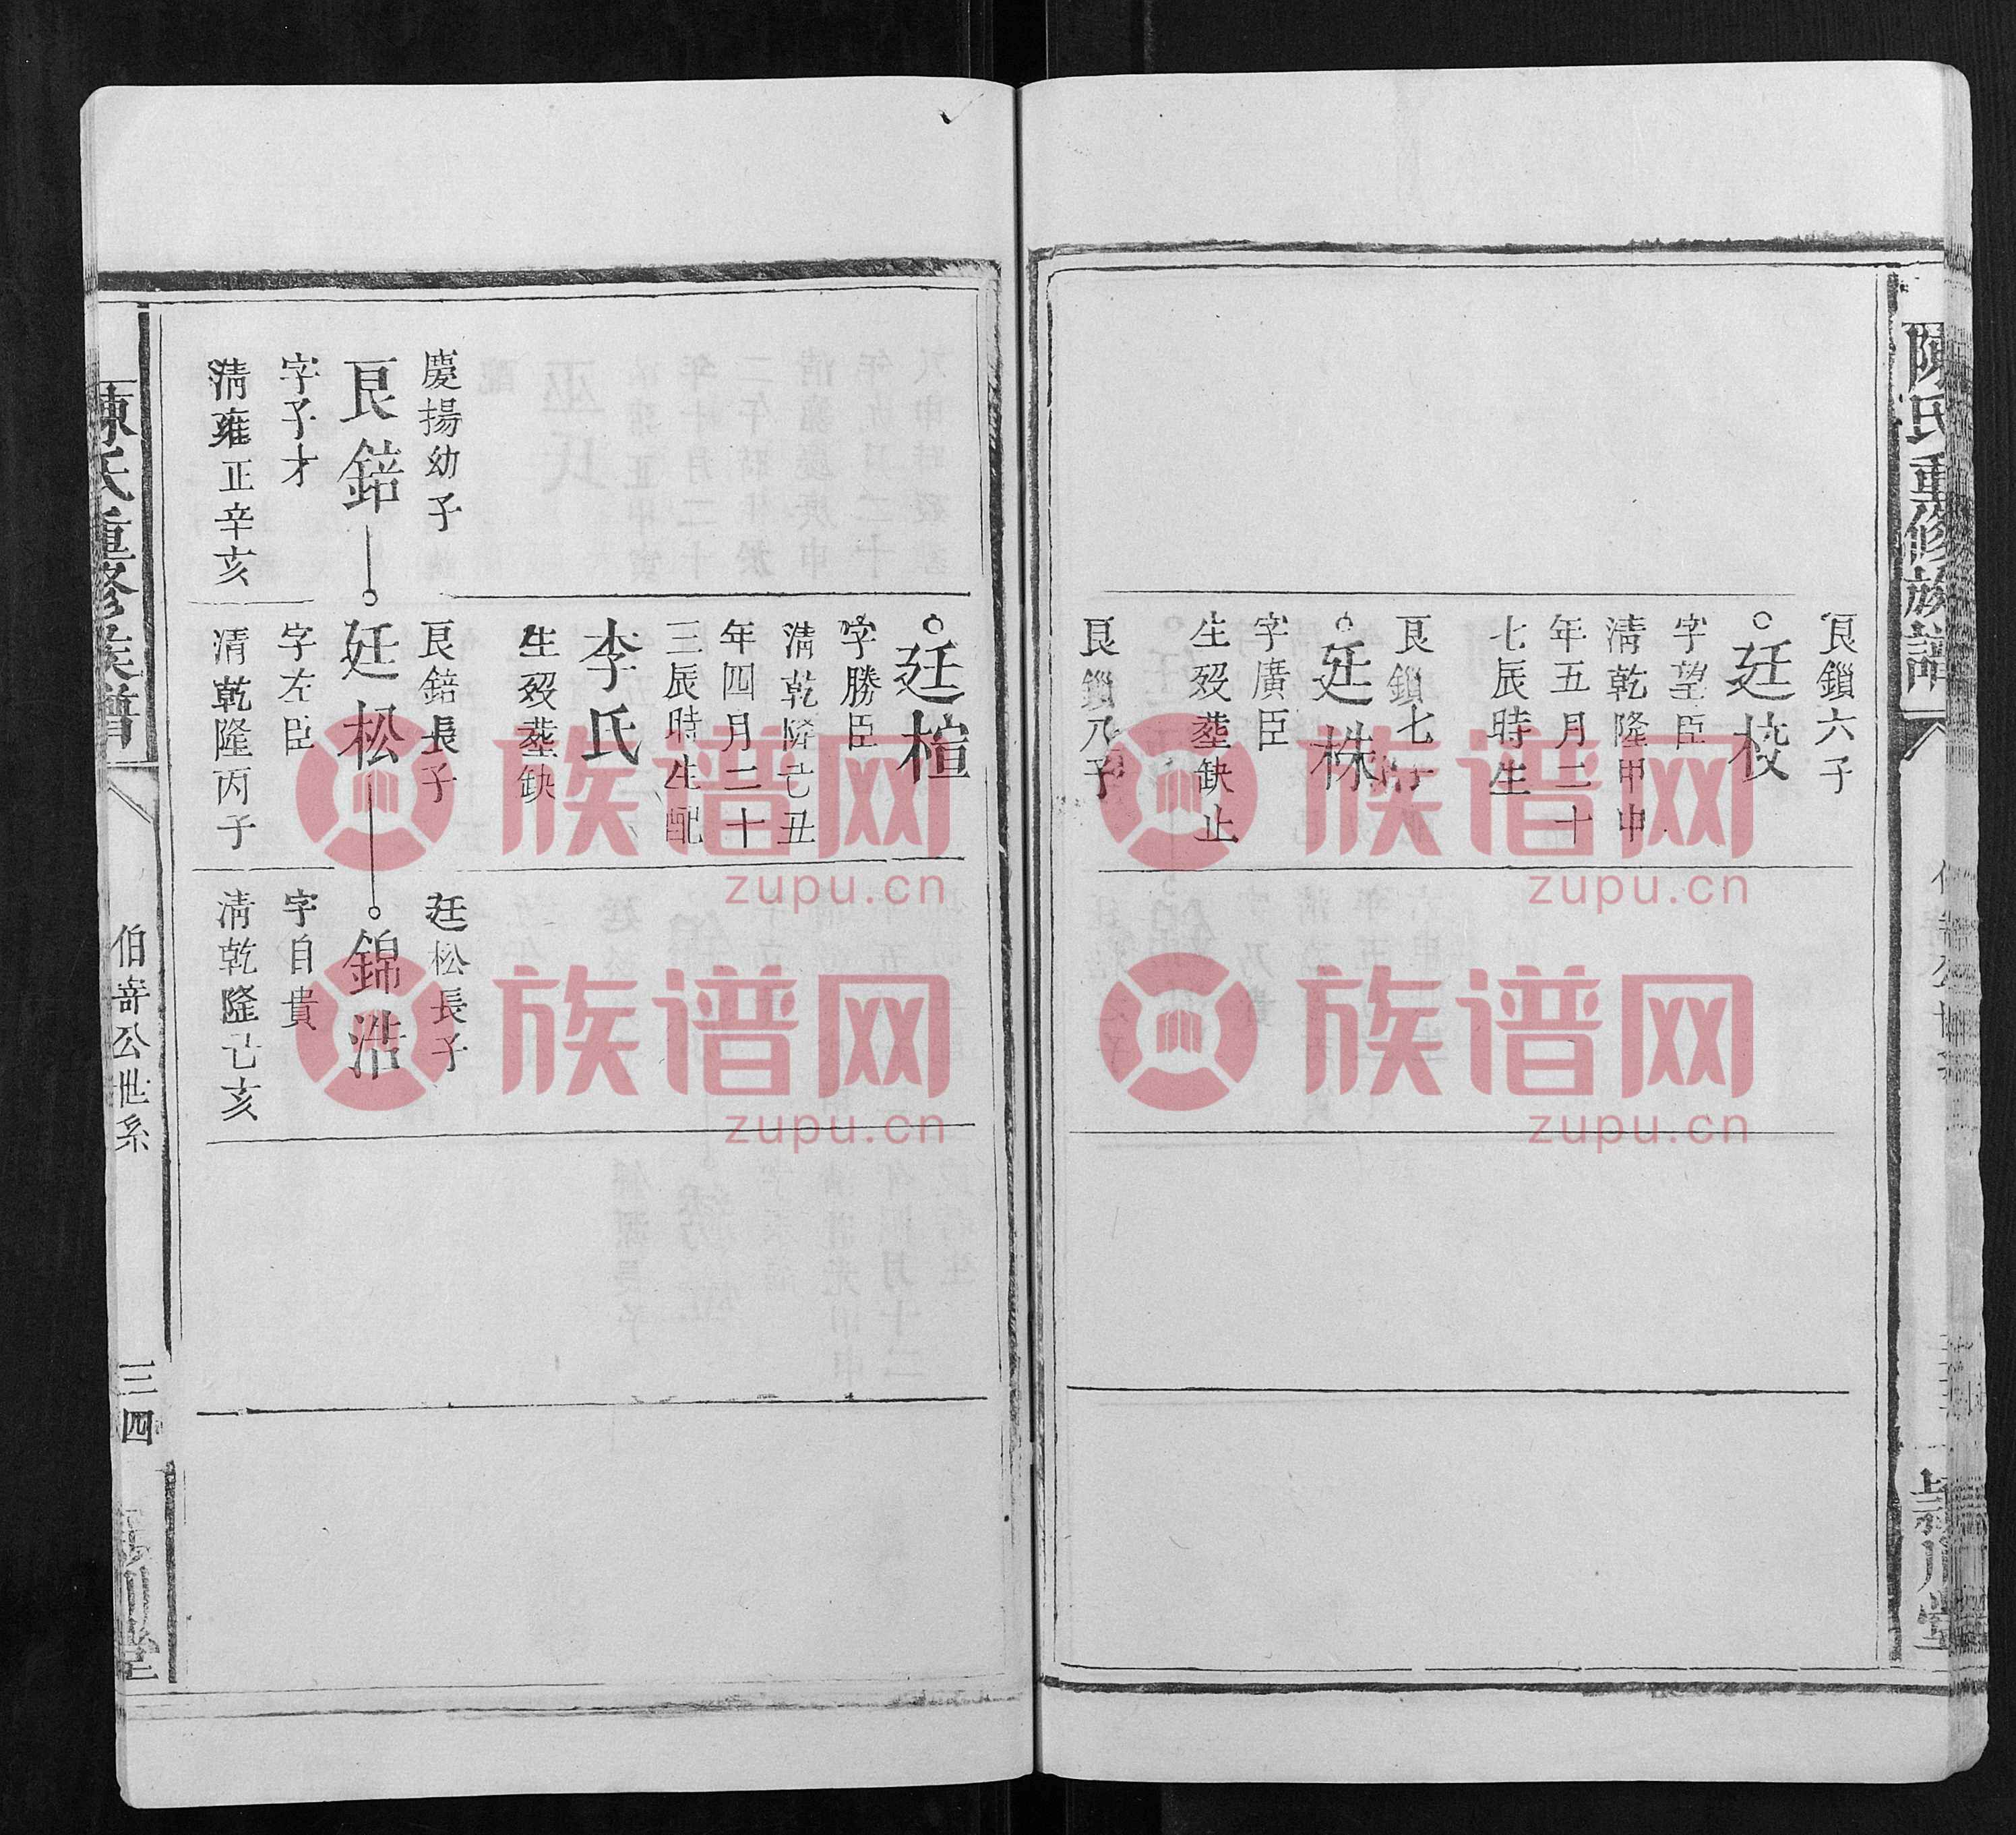 陳氏重修族譜
穎川堂
艮鎖六子
廷校
字望臣
清乾隆甲申
年五月二十
七辰時生
艮鎖七子
廷株
字廣臣
生歿塟缺止
艮鎖八子
廷楦
字勝臣
清乾隆乙丑
年四月二十
三辰時生配
李氏
生歿塟缺
慶揚幼子
艮錇
字子才
清雍正辛亥
艮錇長子
廷松
字左臣
清乾隆丙子
廷松長子
錦浩
字自貴
清乾隆己亥
陳氏重修族譜
伯嵜公世系
三四
堂
族谱网
zupu.cn
族谱网
zupu.cn
族谱网
zupu.cn
族谱网
zupu.cn